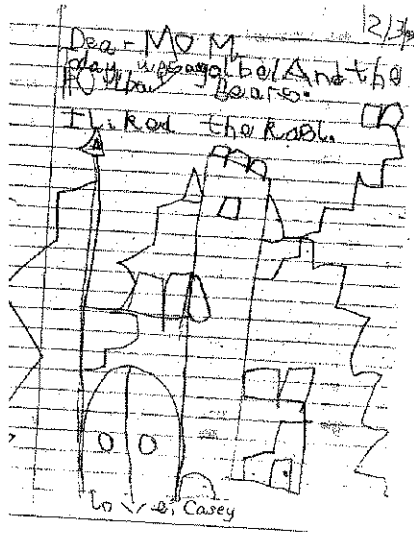 12/3
Dear MOM,
play was golbel And the
bears.
I Liked the Kasl.
Love, Casey